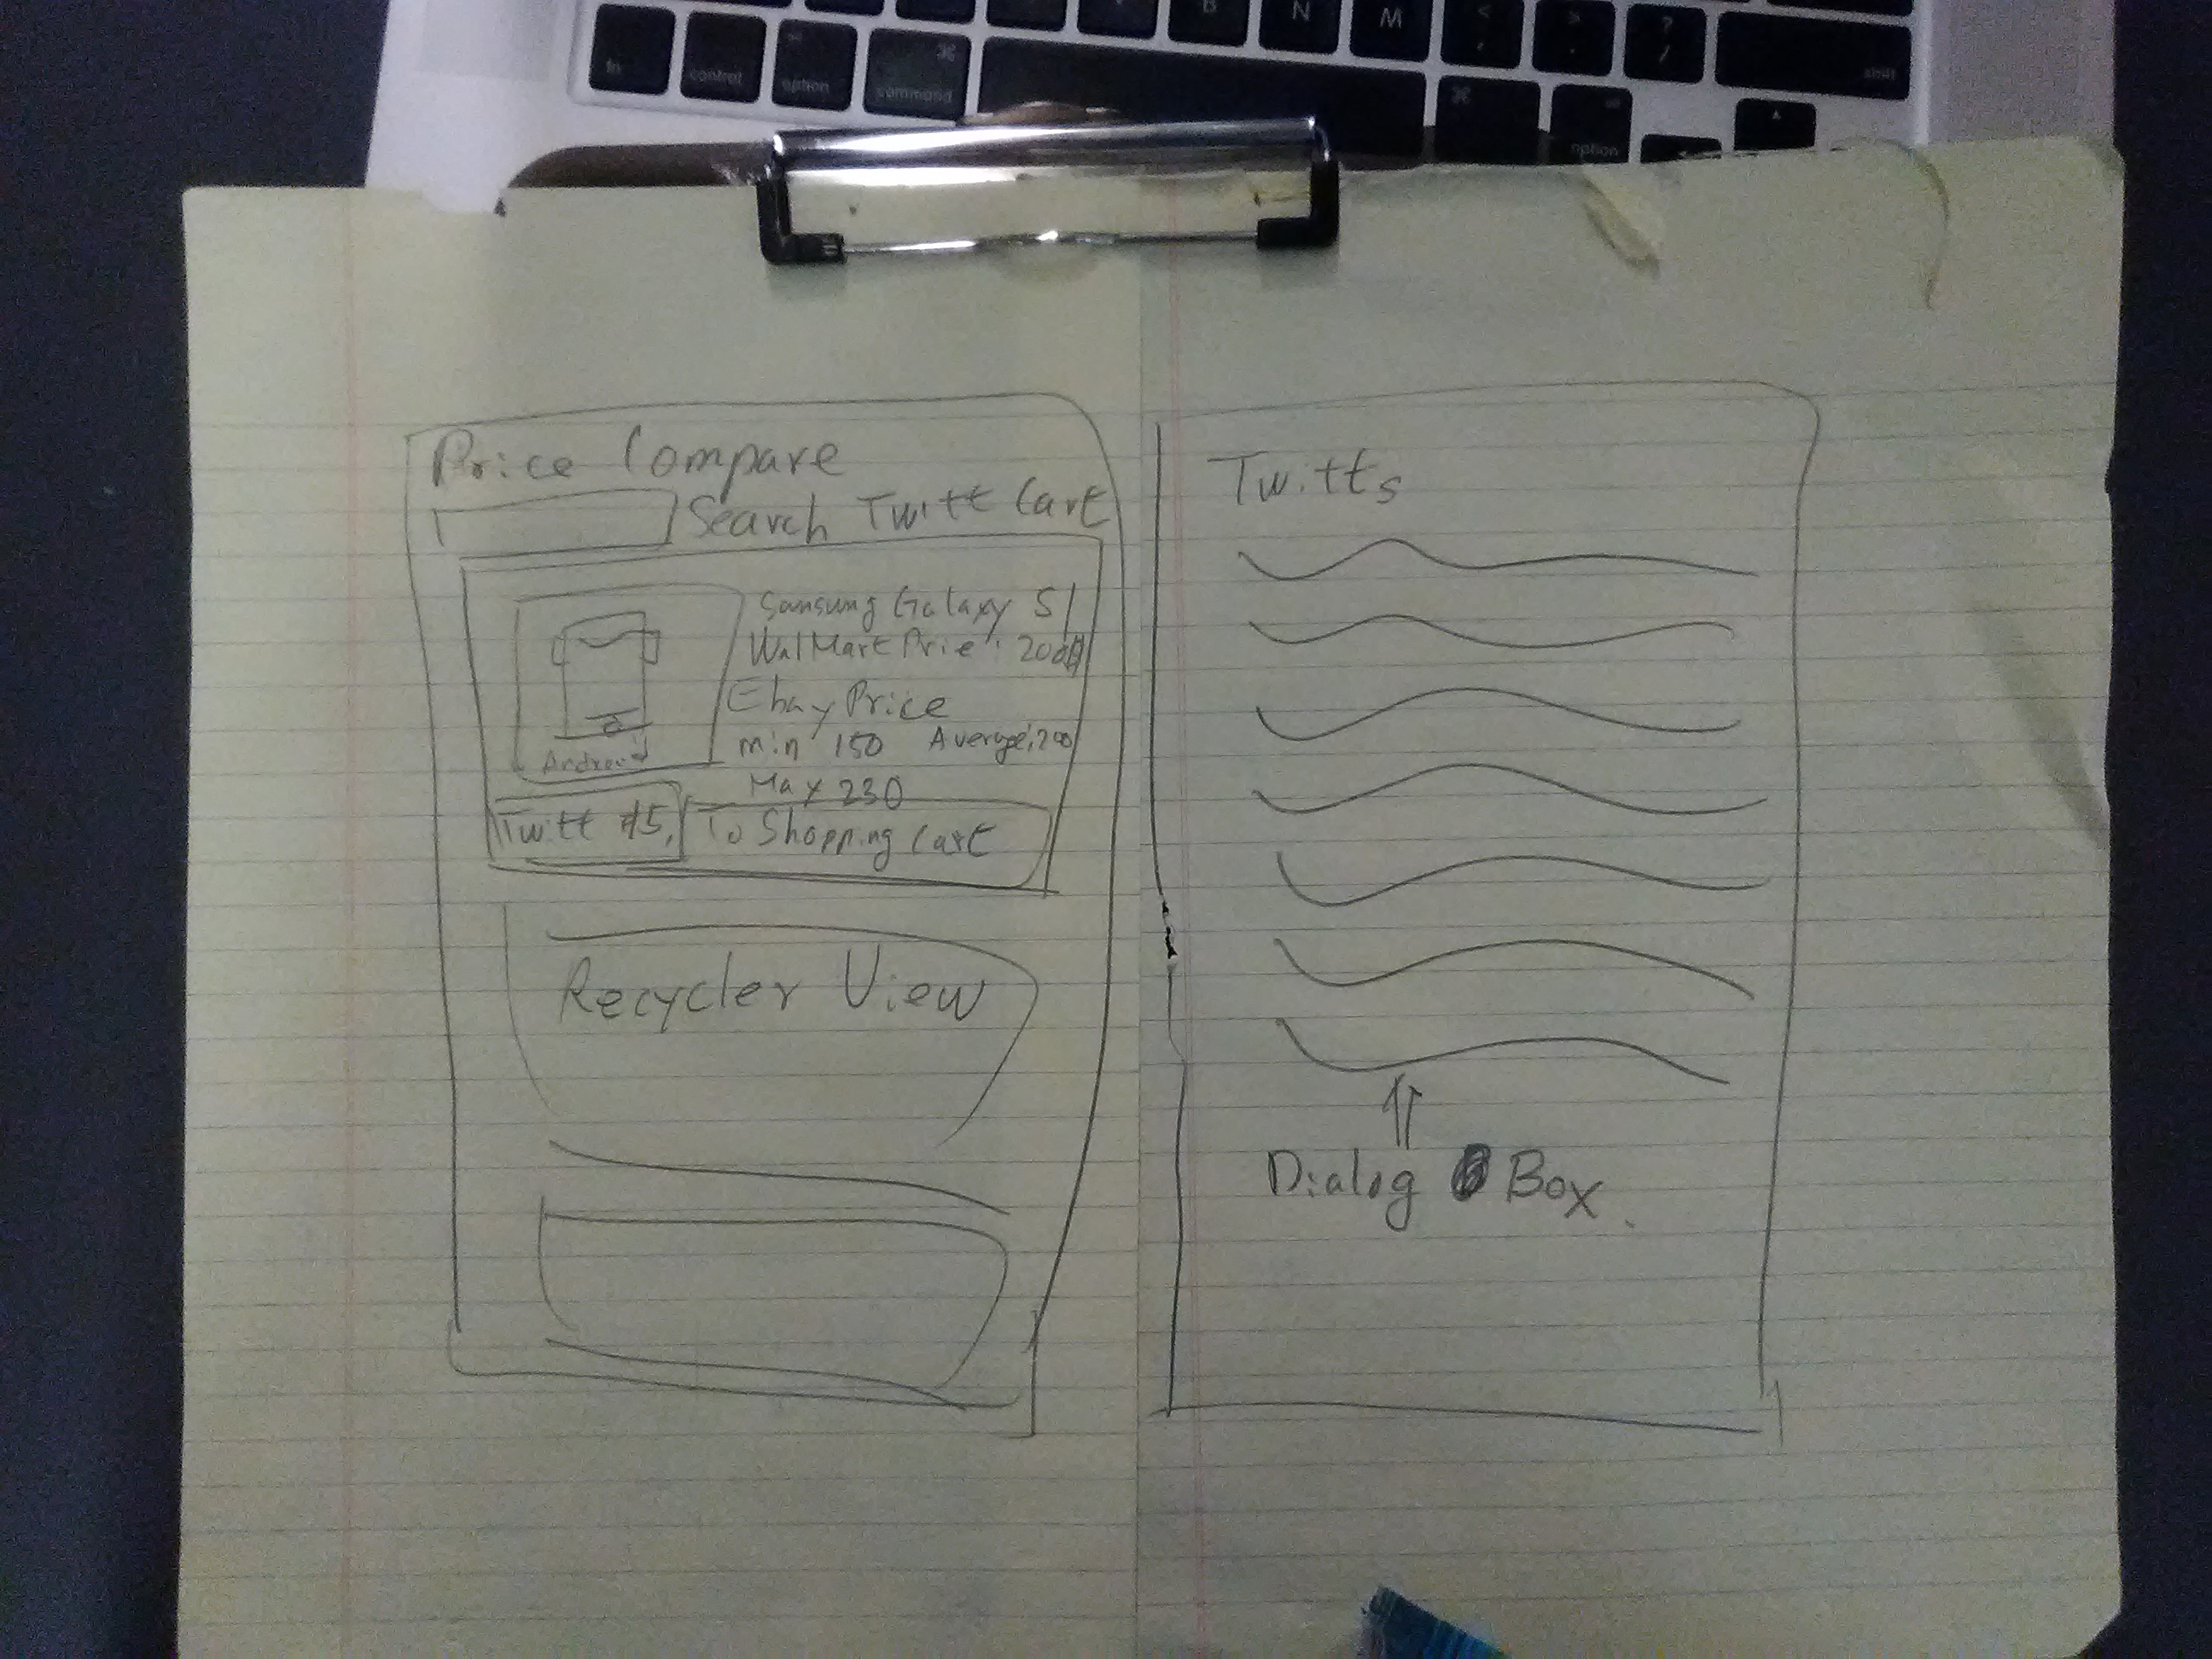 B N M < , > . ? /
fn control option command ⌘ option shift
Price Compare
Search Twitt Cart
Samsung Galaxy S
WalMart Prie : 200
Ebay Price
min 150 Average: 200
Max 230
Android
Twitt #5, To Shopping Cart
Recycler View
Twitts
Dialog Box.